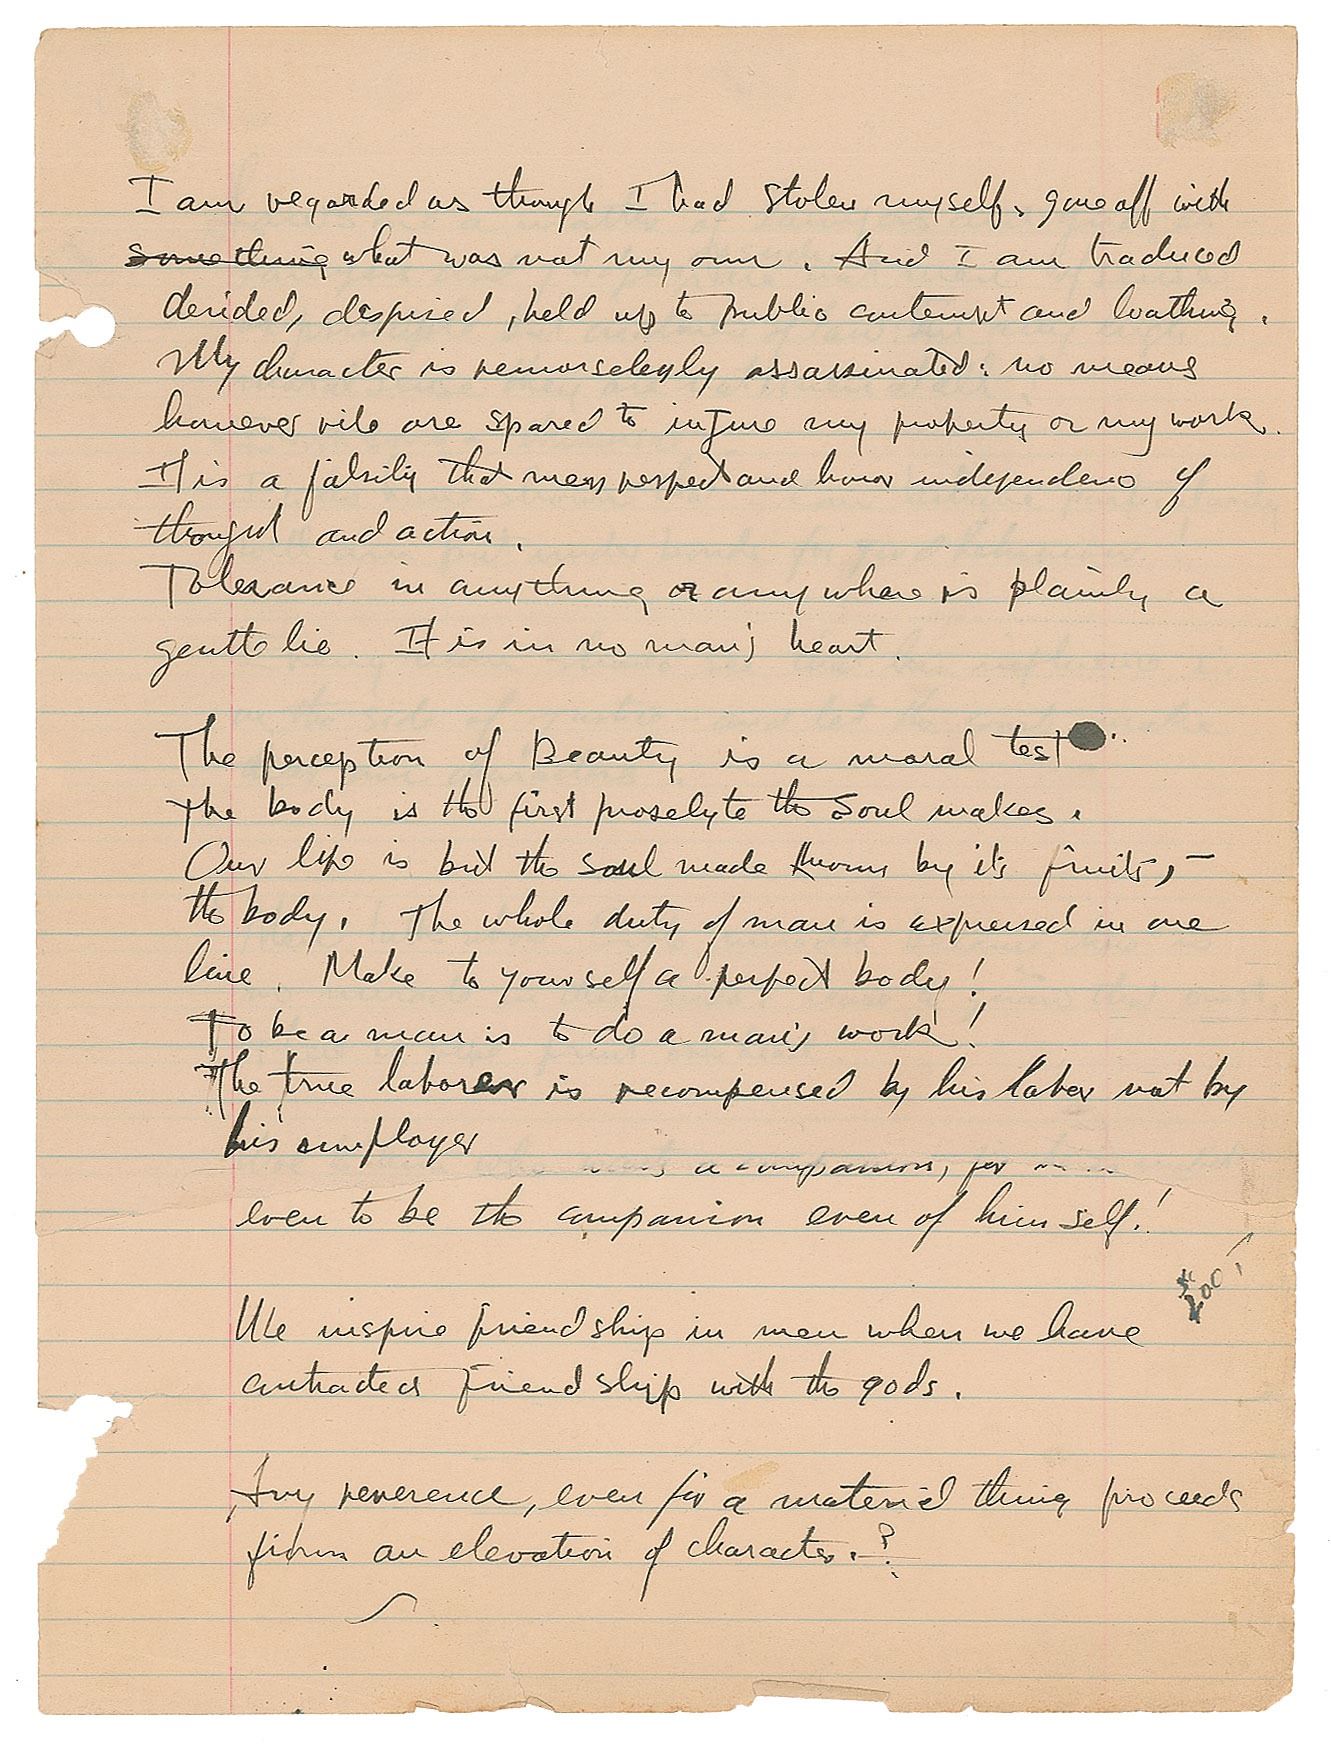 I am regarded as though I had stolen myself, gone off with
something what was not my own. And I am traduced
derided, despised, held up to public contempt and loathing.
My character is remorselessly assassinated: no means
however vile are spared to injure my property or my work.
It is a falsity that men respect and honor independence of
thought and action.
Tolerance in anything or anywhere is plainly a
gentle lie. It is in no man's heart.
The perception of Beauty is a moral test
The body is the first proselyte the Soul makes.
Our life is but the soul made known by its fruits, –
the body. The whole duty of man is expressed in one
line. Make to yourself a perfect body!
To be a man is to do a man's work!
The true laborer is recompensed by his labor not by
his employer
a companion, for
even to be the companion even of himself!
We inspire friendship in men when we have
contracted friendship with the gods.
Any reverence, even for a material thing proceeds
from an elevation of character.?